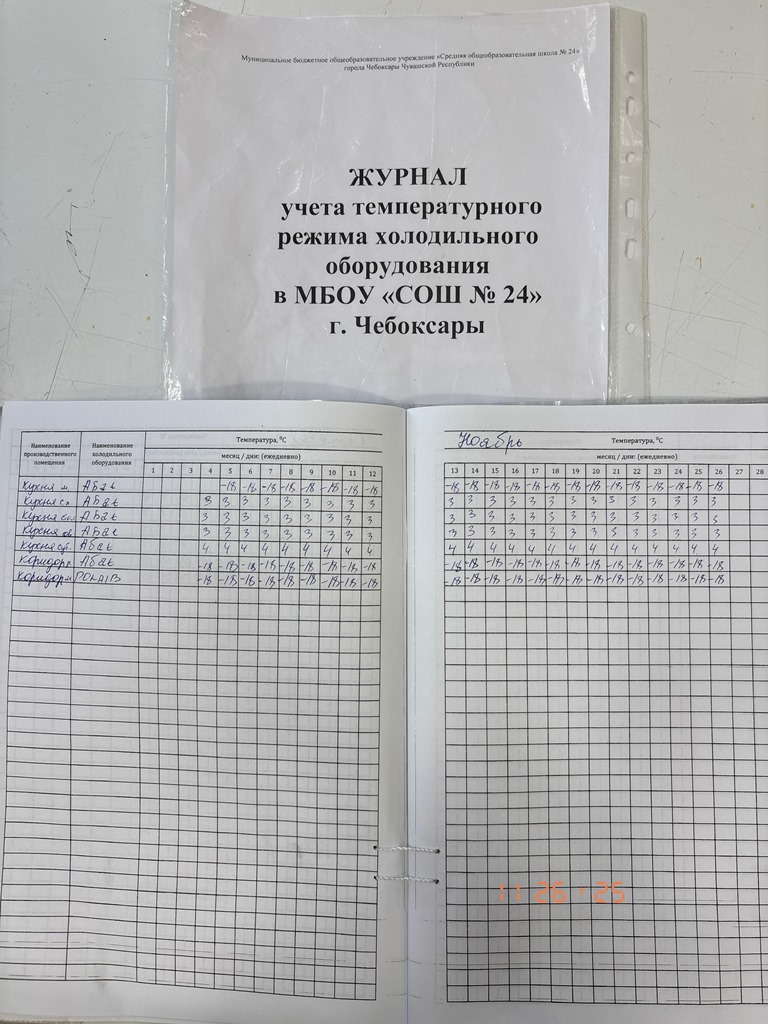 Муниципальное бюджетное общеобразовательное учреждение «Средняя общеобразовательная школа № 24»
города Чебоксары Чувашской Республики
ЖУРНАЛ
учета температурного
режима холодильного
оборудования
в МБОУ «СОШ № 24»
г. Чебоксары
Наименование производственного помещения Наименование холодильного оборудования Температура, °С
месяц / дни: (ежедневно)
1 2 3 4 5 6 7 8 9 10 11 12
Кухня Абат -18 -18 -18 -18 -18 -18 -18 -18
Кухня Абат 3 3 3 3 3 3 3 3 3
Кухня Абат 3 3 3 3 3 3 3 3 3
Кухня Абат 3 3 3 3 3 3 3 3 3
Кухня Абат 4 4 4 4 4 4 4 4 4
Коридор Абат -18 -18 -18 -18 -18 -18 -18 -18 -18
Коридор -18 -18 -18 -18 -18 -18 -18 -18 -18
Ноябрь Температура, °С
месяц / дни: (ежедневно)
13 14 15 16 17 18 19 20 21 22 23 24 25 26 27 28
-18 -18 -18 -18 -18 -18 -18 -18 -18 -18 -18 -18 -18 -18
3 3 3 3 3 3 3 3 3 3 3 3 3 3
3 3 3 3 3 3 3 3 3 3 3 3 3 3
3 3 3 3 3 3 3 3 3 3 3 3 3 3
4 4 4 4 4 4 4 4 4 4 4 4 4 4
-18 -18 -18 -18 -18 -18 -18 -18 -18 -18 -18 -18 -18 -18
-18 -18 -18 -18 -18 -18 -18 -18 -18 -18 -18 -18 -18 -18
11 26 '25